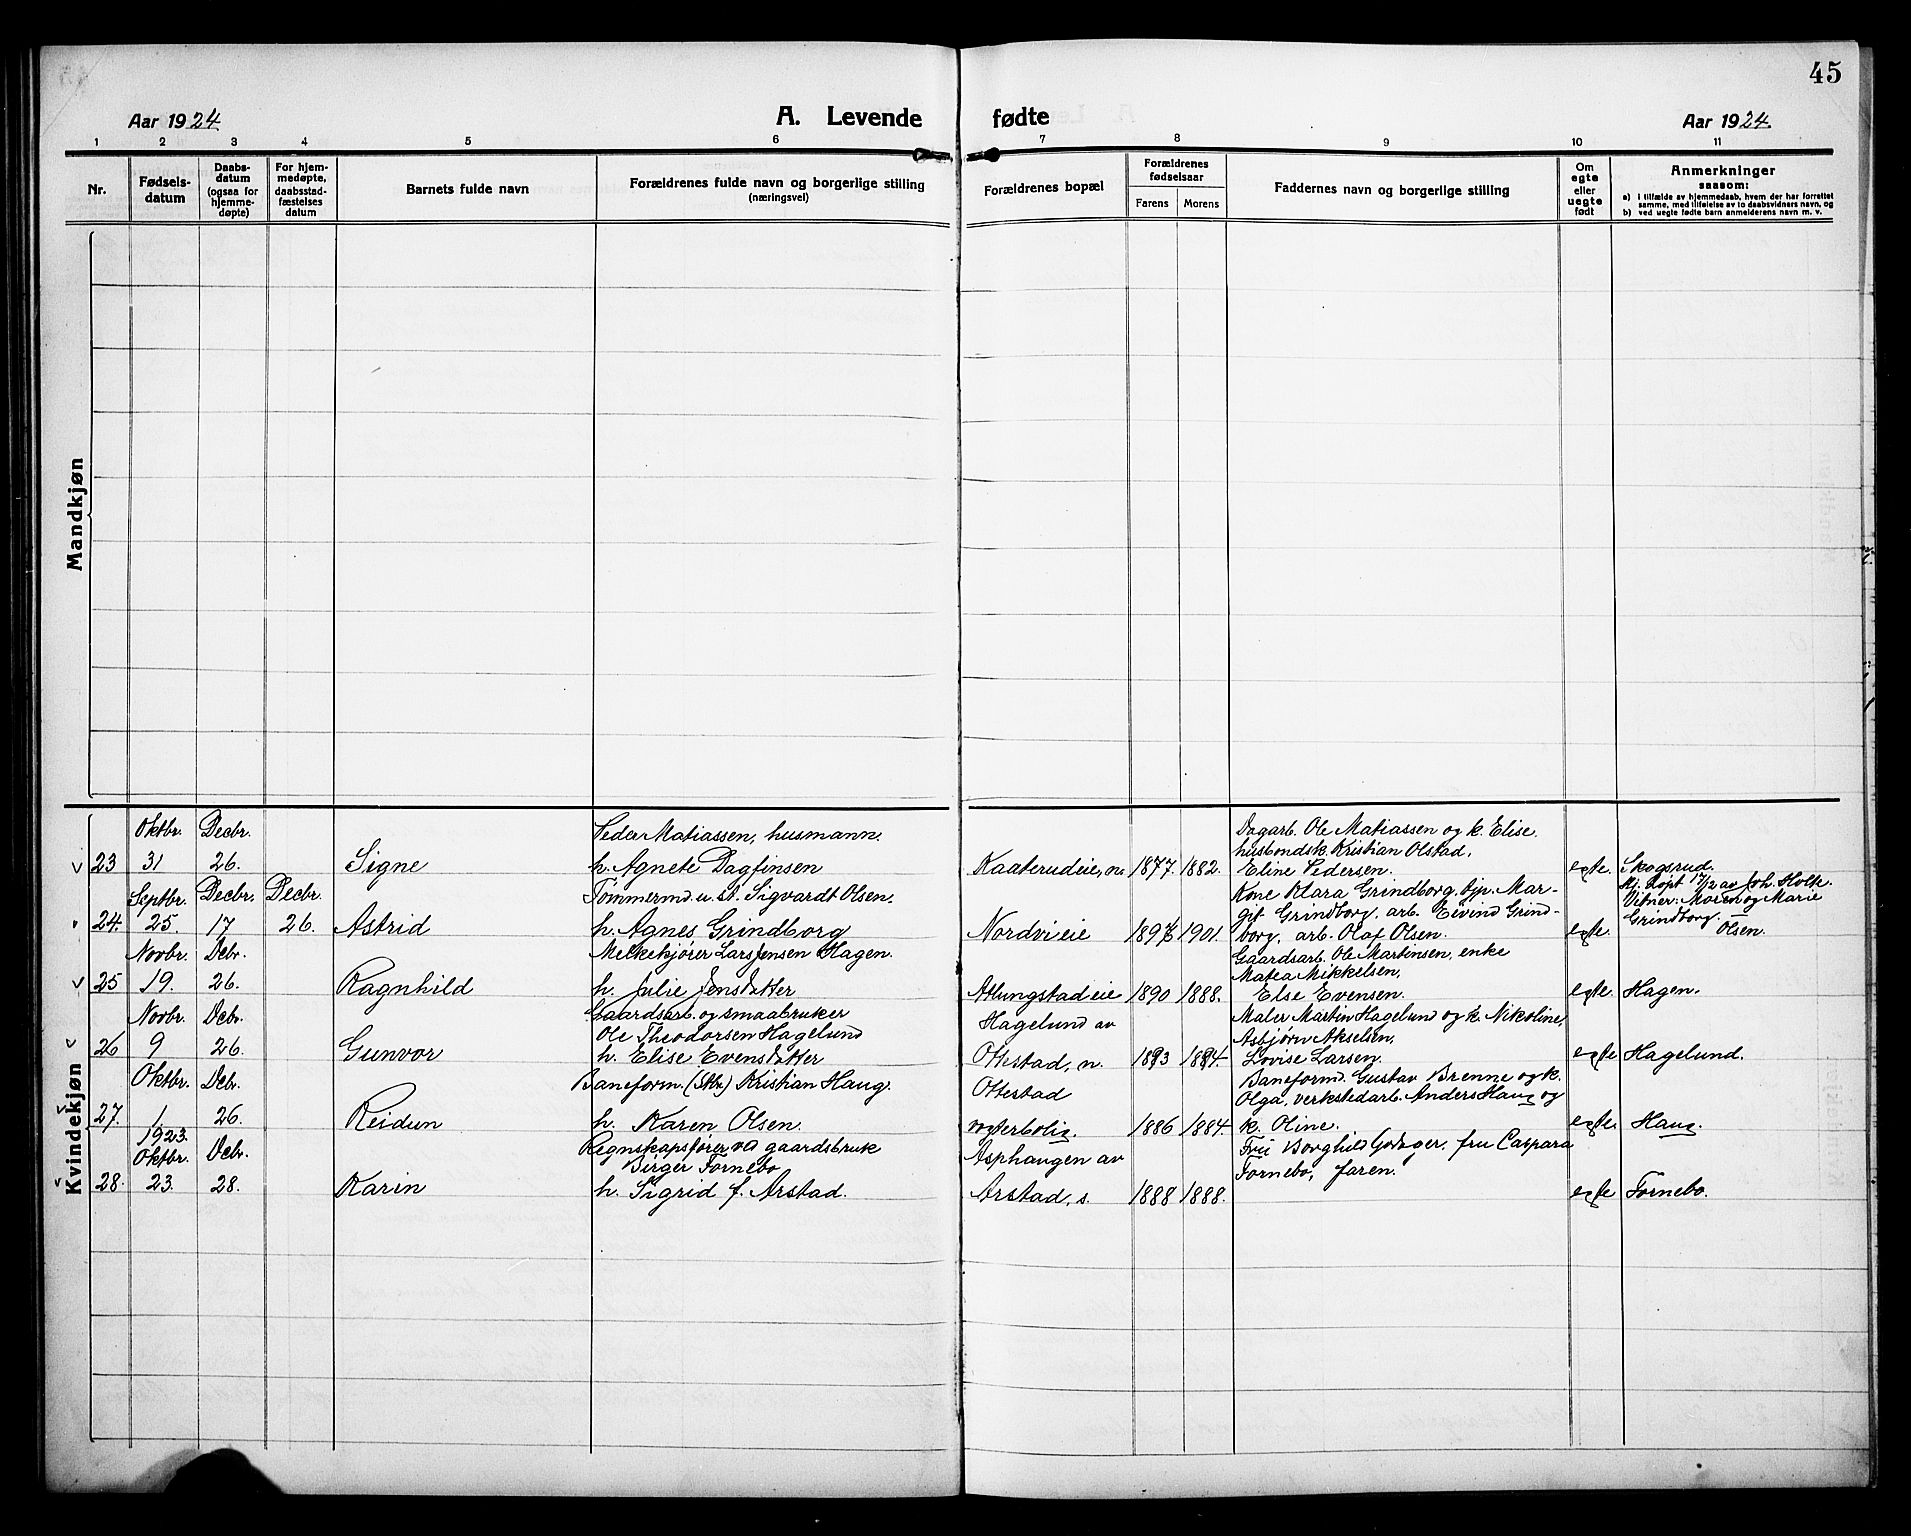 45
Aar 1924. A. Levende fødte Aar 1924.
1 2 3 4 5 6 7 8 9 10 11
Nr.
Fødselsdatum
Daabsdatum (ogsaa for hjemmedøpte)
For hjemmedøpte, daabsstadfæstelses datum
Barnets fulde navn
Forældrenes fulde navn og borgerlige stilling (næringsvei)
Forældrenes bopæl
Forældrenes fødselsaar
Farens Morens
Faddernes navn og borgerlige stilling
Om egte eller uegte født
Anmerkninger
saasom:
a) i tilfælde av hjemmedaab, hvem der har forrettet
samme, med tilføielse av to daabsvidners navn, og
b) ved uegte fødte barn anmelderens navn m. v.
Mandkjøn
Kvindekjøn
Oktbr. Decbr. Peder Matiassen, husmann. Dagarb. Ole Matiassen og k. Elise.
husbondsk. Kristian Olstad,
v 23 31 26. Signe h. Agnete Dagfinsen Kaaterudeie, 1877. 1882. Eline Pedersen. egte. Skogsrud.
Septbr. Decbr. Decbr. Tømmermd. u. st. Sigvardt Olsen. Kone Klara Grindborg, pp. Mar- Hj. døpt 17/12 av Joh. Holte.
Vitner: Maren og Marie
24. 25. 17 26. Astrid h. Agnes Grindborg Nordvieie 1897 1901. git Grindborg, arb. Eivind Grind- Grindborg.
borg, arb. Olaf Olsen. egte. Olsen.
Novbr. Debr. Melkekjører Lars Jensen Hagen. Gaardsarb. Ole Martinsen, enke
Matea Mikkelsen,
v 25 19. 26. Ragnhild h. Julie Jensdatter Atlungstadeie 1890 1888. Else Evensen. egte. Hagen.
Novbr. Debr. Gaardsarb. og smaabruker Hagelund av Maler Martin Hagelund og k. Nikoline,
Ole Theodorsen Hagelund Asbjørn Akselsen,
v 26 9 26. Gunvor h. Elise Evensdatter Ottestad, n. 1893 1894. Lovise Larsen. egte Hagelund.
Oktbr. Debr. Baneform. (Stbr.) Kristian Haug. Ottestad Baneformd. Gustav Brenne og k.
Olga, verkstedarb. Anders Haug og
v 27. 1. 26. Reidun h. Karen Olsen. vogterbolig. 1886 1884. k. Oline. egte. Haug.
1923. Oktbr. Debr. Regnskapsfører ved gaardsbruk Asphaugen av Fru Borghild Godager, fru Caspara
Birger Fornebo Fornebo, faren.
v 28. 23. 28. Karin h. Sigrid f. Arstad. Arstad, s. 1888 1888. egte Fornebo.